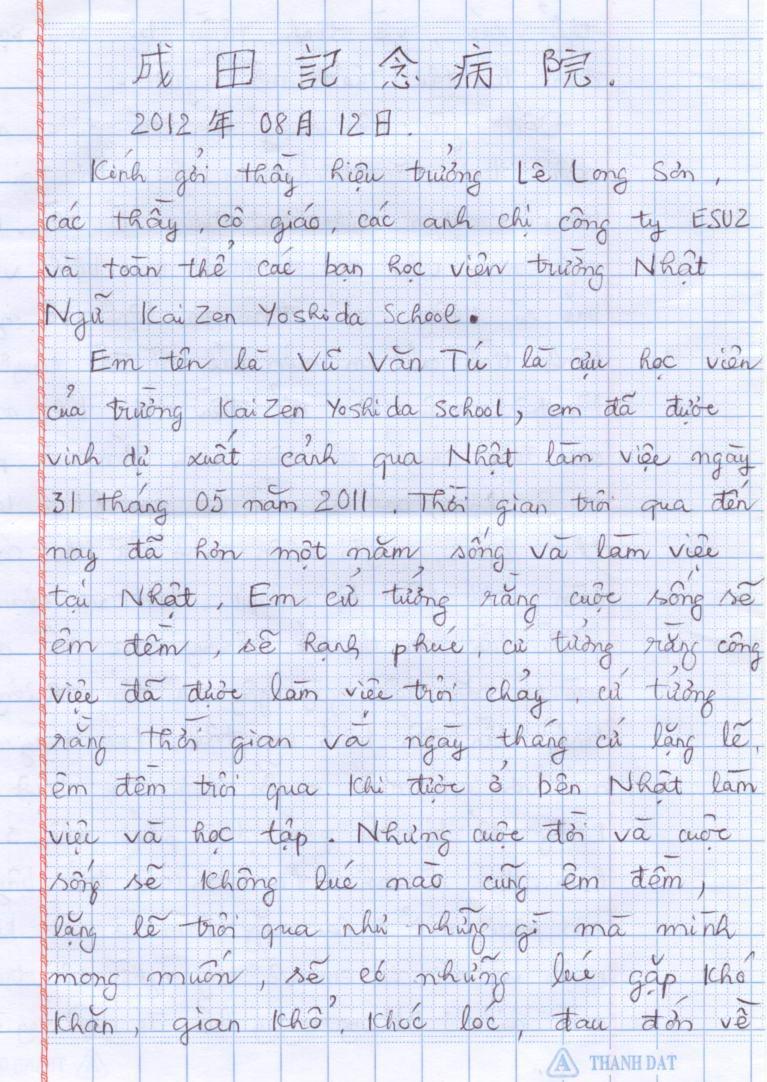 成田記念病院.
2012年 08月 12日.
Kính gởi thầy hiệu trưởng Lê Long Sơn,
các thầy, cô giáo, các anh chị công ty ESU2
và toàn thể các bạn học viên trường Nhật
Ngữ KaiZen Yoshida School.
Em tên là Vũ Văn Tú là cựu học viên
của trường KaiZen Yoshida School, em đã được
vinh dự xuất cảnh qua Nhật làm việc ngày
31 tháng 05 năm 2011. Thời gian trôi qua đến
nay đã hơn một năm sống và làm việc
tại Nhật, Em cứ tưởng rằng cuộc sống sẽ
êm đềm, sẽ hạnh phúc, cứ tưởng rằng công
việc đã được làm việc trôi chảy, cứ tưởng
rằng thời gian và ngày tháng cứ lặng lẽ,
êm đềm trôi qua khi được ở bên Nhật làm
việc và học tập. Nhưng cuộc đời và cuộc
sống sẽ không lúc nào cũng êm đềm,
lặng lẽ trôi qua như những gì mà mình
mong muốn, sẽ có những lúc gặp khó
khăn, gian khổ, khóc lóc, đau đớn về
THANH DAT